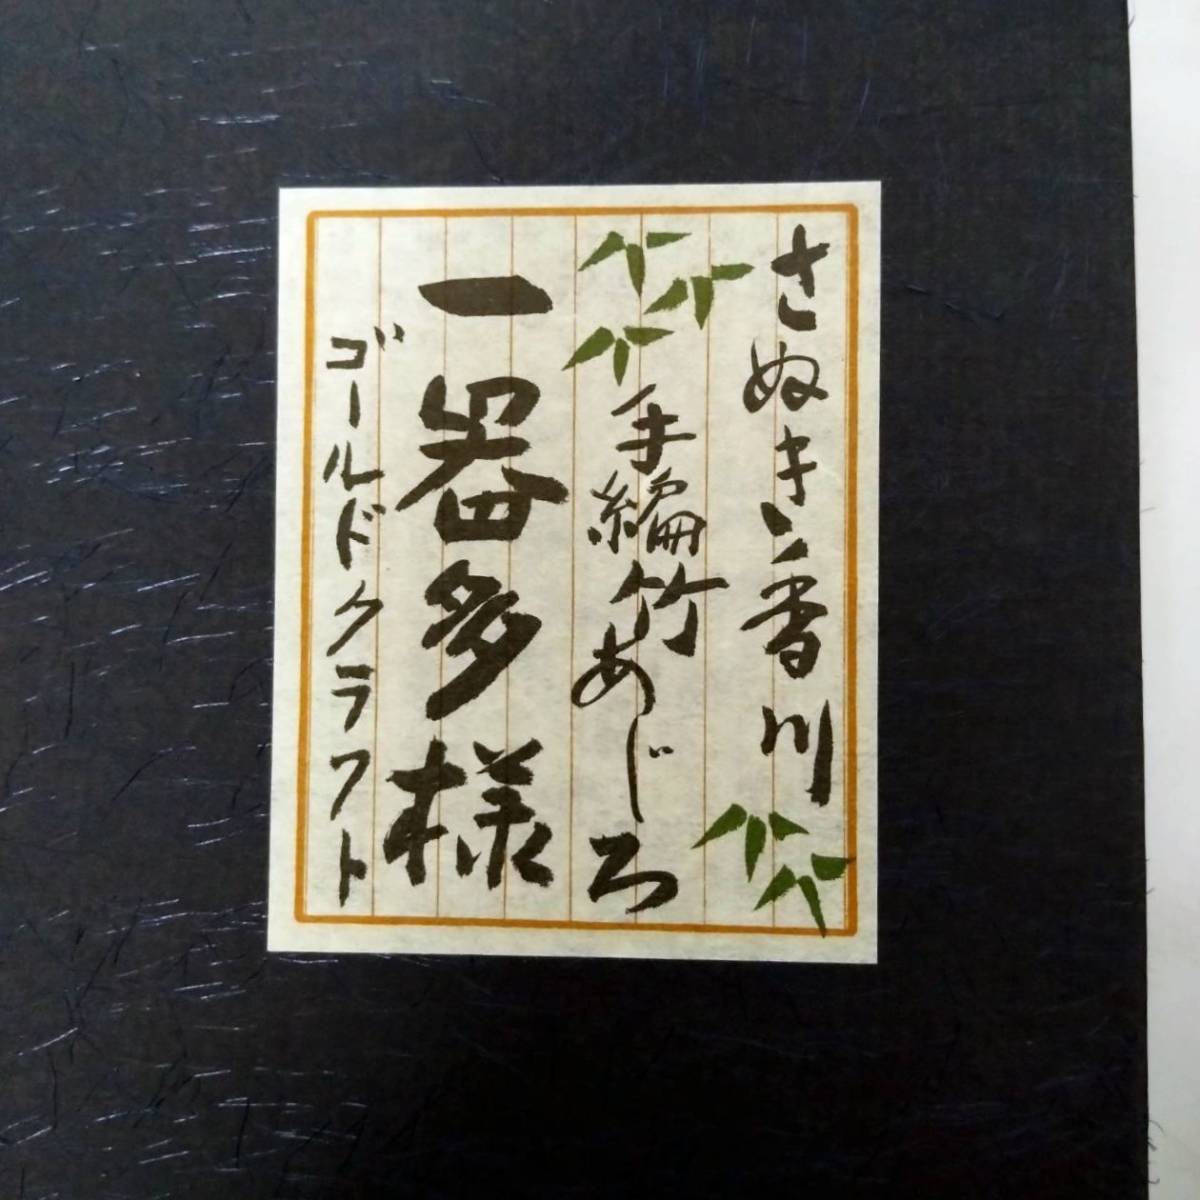 さぬき、香川
手編竹あじろ
一器多様
ゴールドクラフト